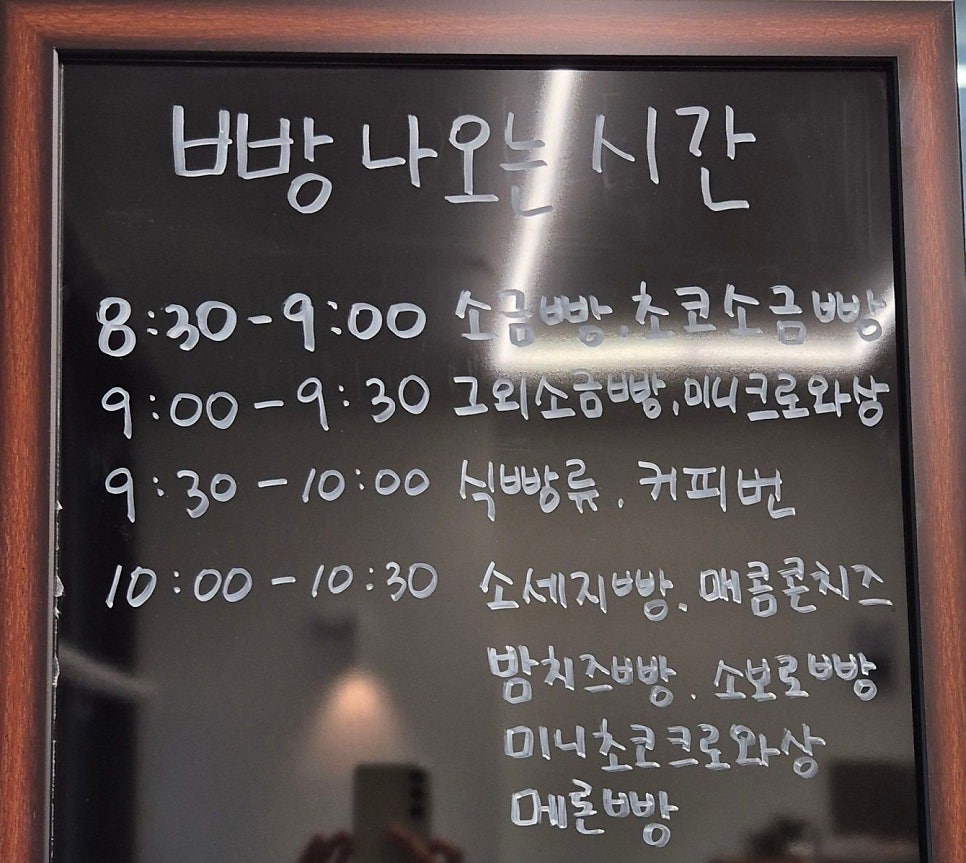 빵 나오는 시간
8:30-9:00 소금빵, 초코소금빵
9:00-9:30 그외소금빵, 미니크로와상
9:30-10:00 식빵류, 커피번
10:00-10:30 소세지빵, 매콤콘치즈
밤치즈빵, 소보로빵
미니초코크로와상
메론빵